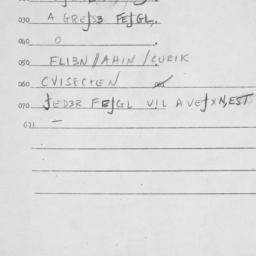 030 A GREJSE FEJGL,.
040 O .
050 FLIEN // AHIN / CURIK
060 CVISECTEN
070 JEDER FEJGL VIL A VEJXN, EST
071 —